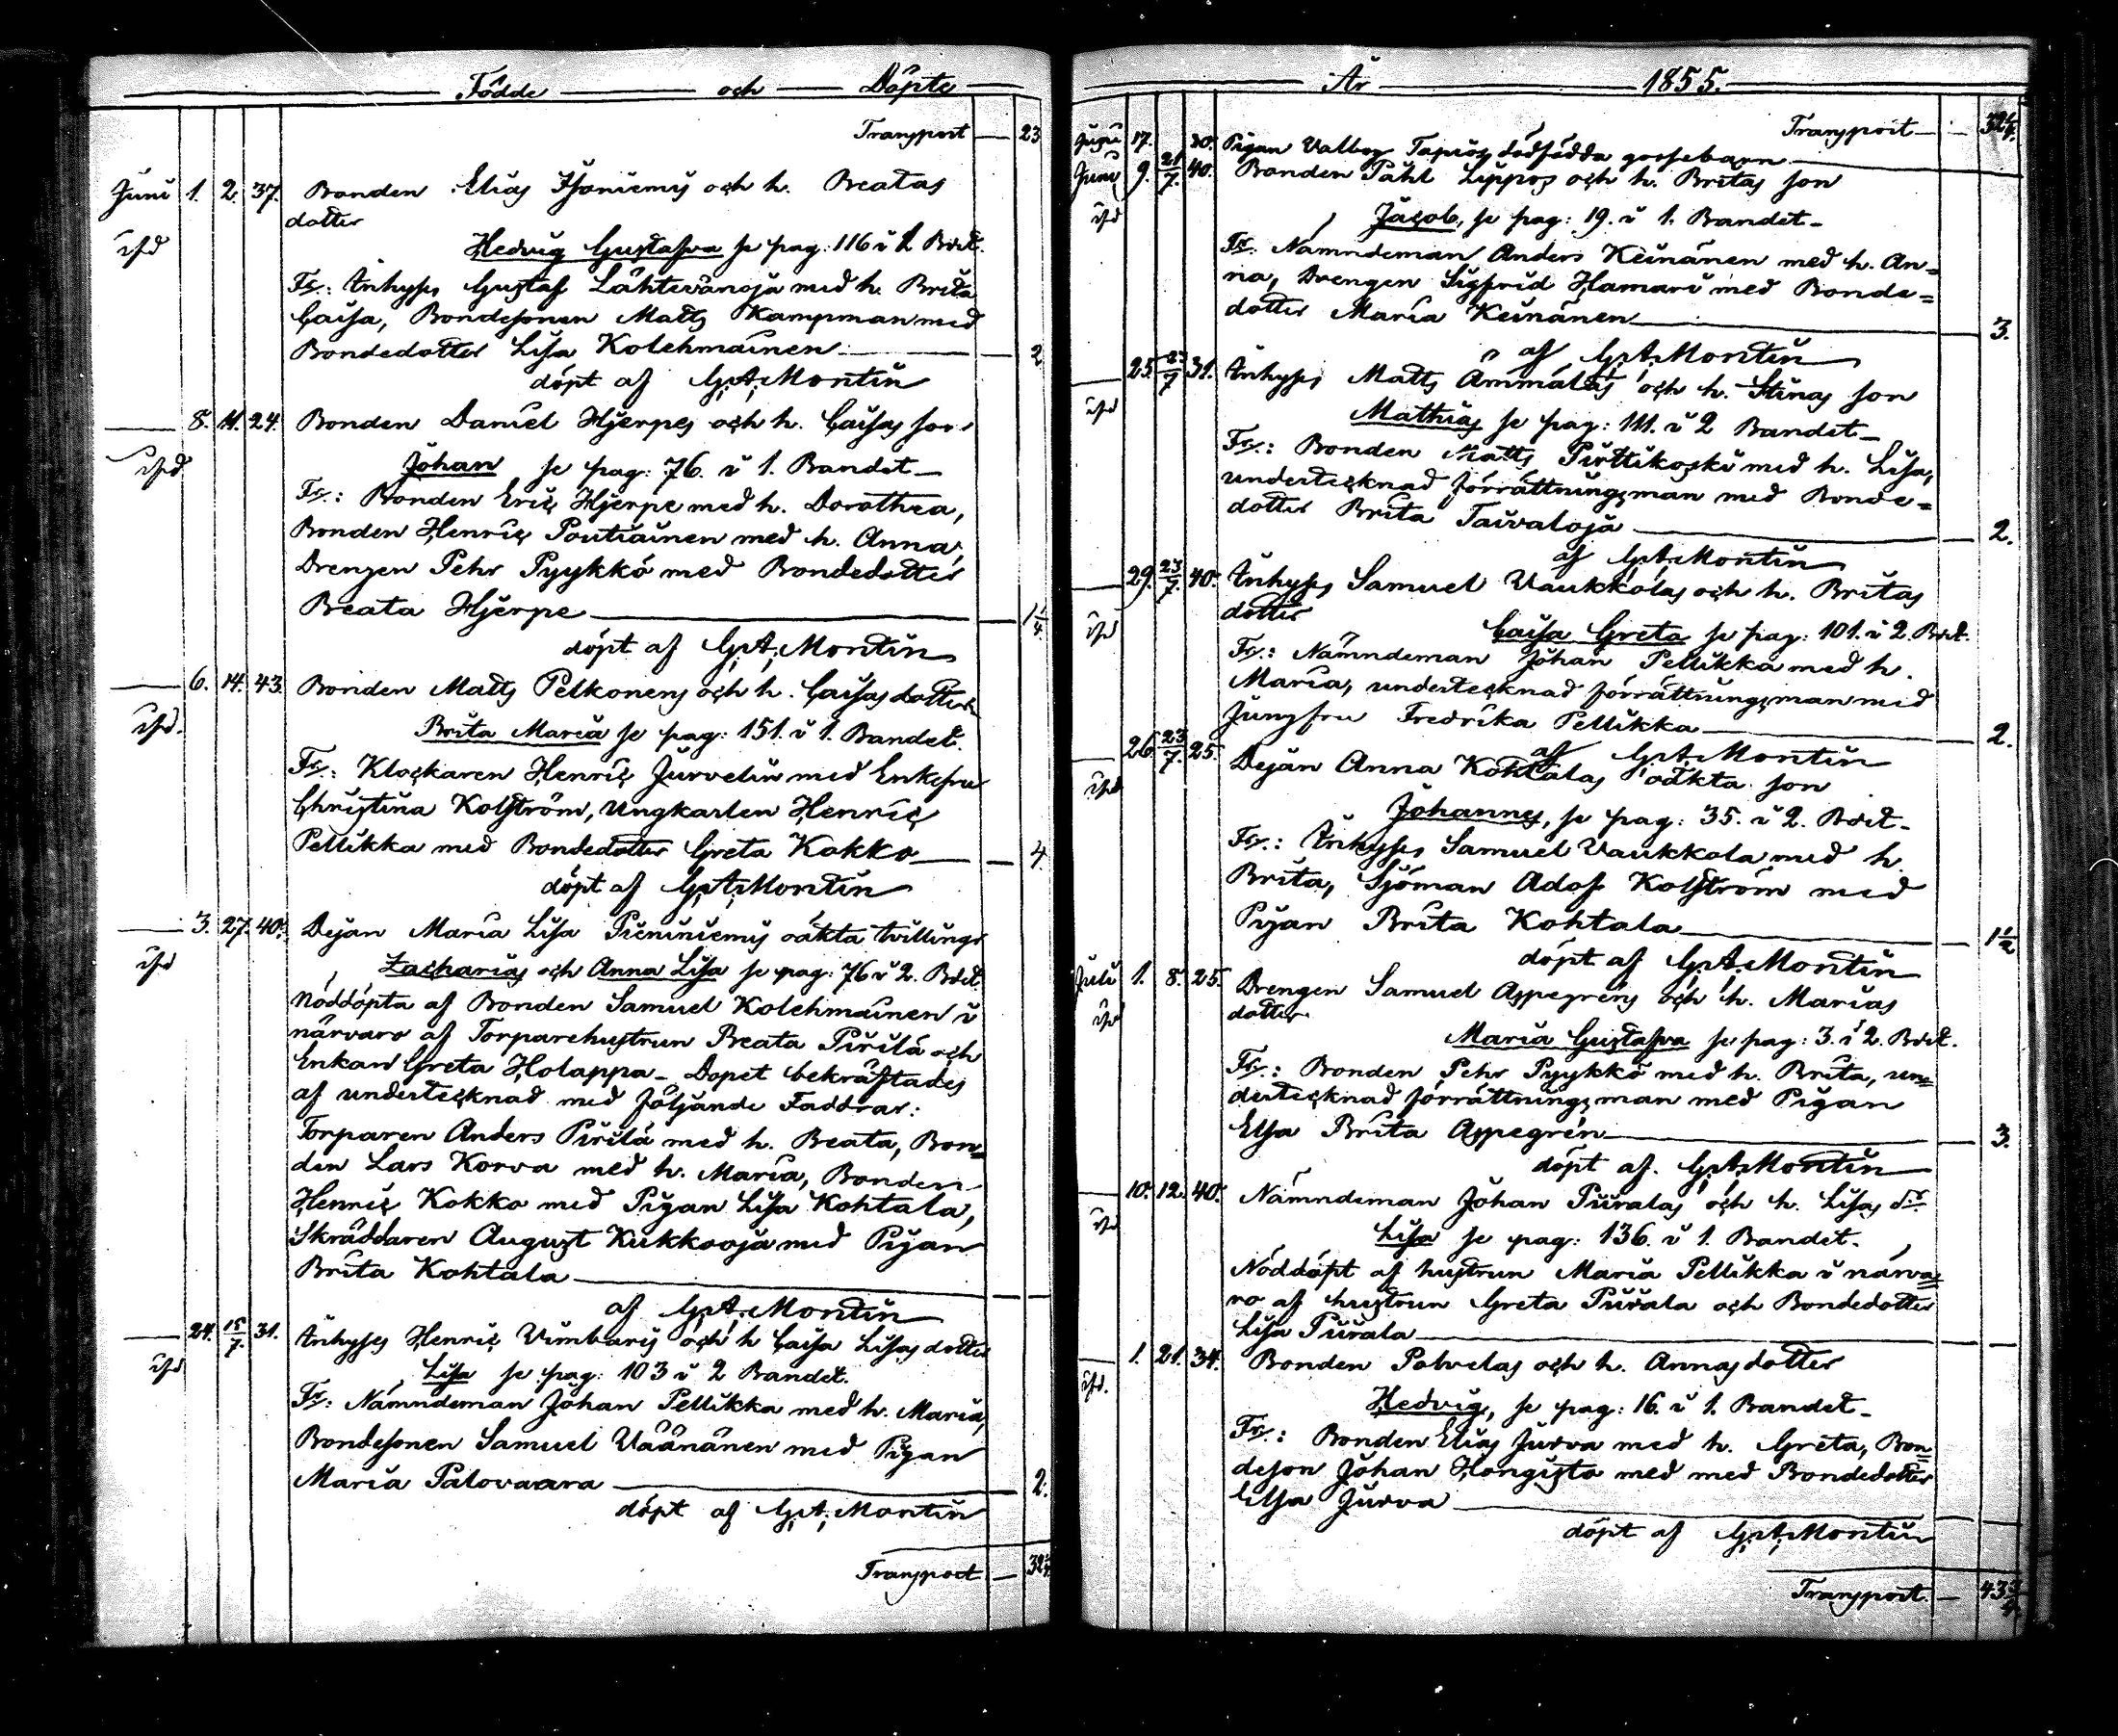 Födde och Döpte
Transport 23
Juni 1. 2. 37. Bonden Elias Isoniemis och h. Beatas
dotter
Hedvig Gustafva se pag: 116 i 2 Bdet.
Fr: Inhyss Gustaf Lähtevänoja med h. Brita
Caisa, Bondesonen Matts Kampman med
Bondedotter Lisa Kolehmainen 2
döpt af G. A. Montin
8. 11. 24. Bonden Daniel Hjerpes och h. Caisas son
Johan se pag: 76. i 1. Bandet
Fr.: Bonden Eric Hjerpe med h. Dorothea,
Bonden Henric Poutiainen med h. Anna,
Drengen Pehr Pyykkö med Bondedotter
Beata Hjerpe 1 1/4
döpt af G. A. Montin
6. 14. 43. Bonden Matts Pelkonens och h. Caisas dotter
Brita Maria se pag: 151. i 1. Bandet.
Fr.: Klockaren Henric Jurvelin med Enkefru
Christina Kolström, Ungkarlen Henric
Pellikka med Bondedotter Greta Kokko 4.
döpt af G. A. Montin
3. 27. 40. Dejan Maria Lisa Pieniniemis oäkta tvillingar
Zacharias och Anna Lisa se pag: 76 i 2. Bdet.
Nöddöpta af Bonden Samuel Kolehmainen i
närvaro af Torparehustrun Beata Piirilä och
Enkan Greta Holappa - Dopet bekräftades
af undertecknad med följande Faddrar:
Torparen Anders Piirilä med h. Beata, Bon=
den Lars Korva med h. Maria, Bonden
Henric Kokko med Pigan Lisa Kohtala,
Skräddaren August Kukkooja med Pigan
Brita Kohtala
af G. A. Montin
24. 15/7. 31. Inhyses Henric Vimbaris och h Caisa Lisas dotter
Lisa se pag: 103 i 2 Bandet.
Fr: Nämndeman Johan Pellikka med h. Maria,
Bondesonen Samuel Väänänen med Pigan
Maria Palovaara 2.
döpt af G. A. Montin
Transport
År 1855.
Transport
17. 30. Pigan Valborg Tapios dödfödda gossebarn
Juni 9. 21/7. 40. Bonden Påhl Lippos och h. Britas son
Jacob, se pag: 19. i 1. Bandet
Fr. Nämndeman Anders Keinänen med h. An=
na, Drengen Sigfrid Hamari med Bonde=
dotter Maria Keinänen 3.
af G. A. Montin
25. 23/7 31. Inhyses Matts Ämmäläs och h. Stinas son
Mathias se pag: 111. i 2 Bandet
Fr.: Bonden Matts Pirttikoski med h. Lisa,
undertecknad förrättningsman med Bonde=
dotter Brita Taivaloja 2.
af G. A. Montin
29. 23/7. 40. Inhyses Samuel Vaukkolas och h. Britas
dotter
Caisa Greta se pag: 101. i 2. Bdet.
Fr.: Nämndeman Johan Pellikka med h.
Maria, undertecknad förrättningsman med
Jungfru Fredrika Pellikka 2.
af G. A. Montin
26. 23/7. 25. Dejan Anna Kohtalas oäkta son
Johannes, se pag: 35. i 2. Bdet
Fr.: Inhyses Samuel Vaukkola med h.
Brita, Sjöman Adof Kolström med
Pigan Brita Kohtala 1 1/2
döpt af G. A. Montin
Juli 1. 8. 25. Drengen Samuel Appegréns och h. Marias
dotter
Maria Gustafva se pag: 3. i 2. Bdet.
Fr.: Bonden Pehr Pyykkö med h. Brita, un=
dertecknad förrättningsman med Pigan
Elsa Brita Appegrén 3.
döpt af. G. A. Montin
10. 12. 40. Nämndeman Johan Piiralas och h. Lisas dr
Lisa se pag: 136. i 1. Bandet.
Nöddöpt af hustrun Maria Pellikka i närva=
ro af hustrun Greta Piirala och Bondedotter
Lisa Piirala
1. 21. 34. Bonden Polvelas och h. Annas dotter
Hedvig, se pag: 16. i 1. Bandet
Fr.: Bonden Elias Jurva med h. Greta, Bon=
deson Johan Hongisto med med Bondedotter
Elsa Jurva
döpt af G. A. Montin
Transport. 43 3/4.